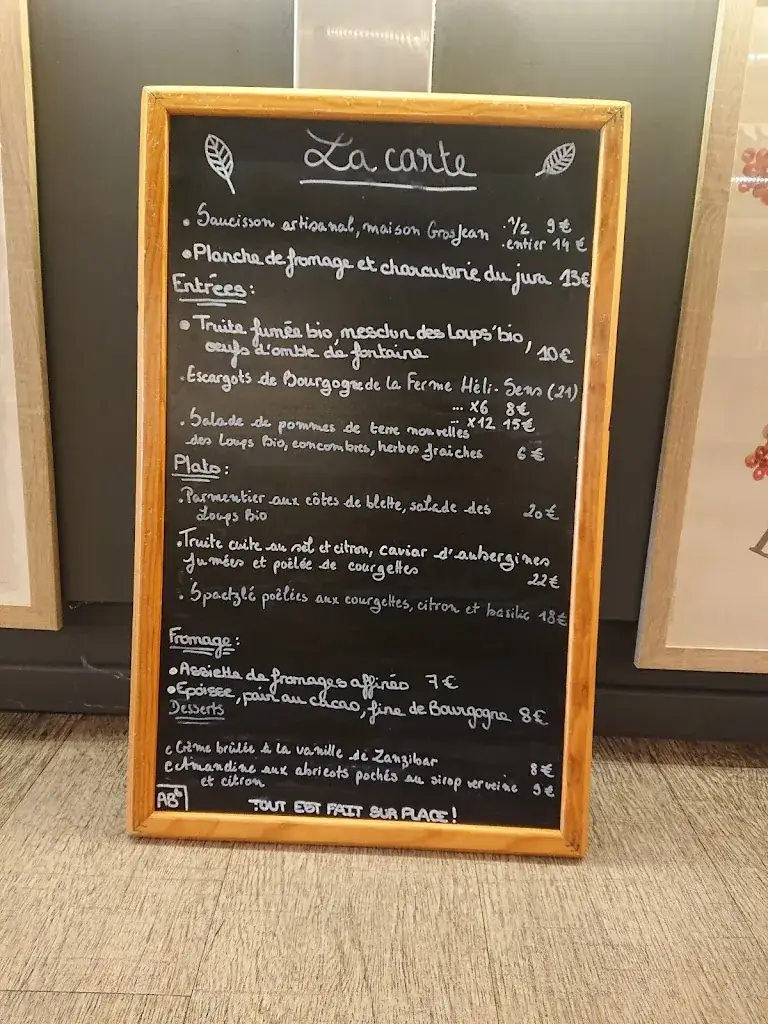 La carte
• Saucisson artisanal, maison GrosJean .1/2 9€
.entier 14€
• Planche de fromage et charcuterie du jura 13€
Entrées:
• Truite fumée bio, mesclun des Loups bio,
oeufs d'omble de fontaine 10€
. Escargots de Bourgogne de la Ferme Héli-Sens (21)
... x6 8€
... x12 15€
. Salade de pommes de terre nouvelles
des Loups Bio, concombres, herbes fraiches 6€
Plats:
. Parmentier aux côtes de blette, salade des
Loups Bio 20€
. Truite cuite au sel et citron, caviar d'aubergines
fumées et poêlée de courgettes 22€
. Spaetzlé poêlées aux courgettes, citron et basilic 18€
Fromage:
• Assiette de fromages affinés 7€
• Epoisse, pain au cacao, fine de Bourgogne 8€
Desserts
Crème brûlée à la vanille de Zanzibar 8€
Amandine aux abricots pochés au sirop verveine
et citron 9€
AB
TOUT EST FAIT SUR PLACE!